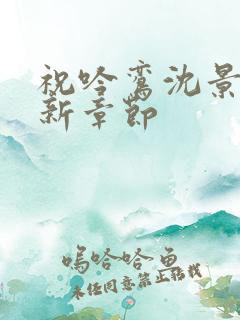 祝吟鸾沈景
新章节
嗚哈哈鱼
未经同意禁止转载